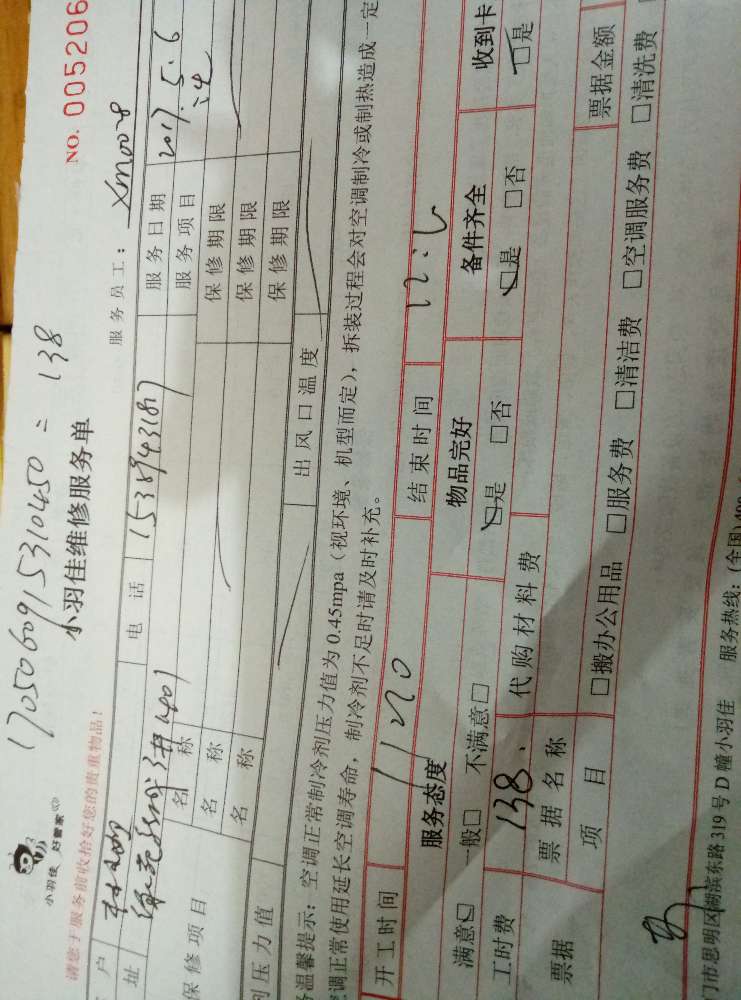 1705060915310450 = 138
小羽佳 好管家
小羽佳维修服务单
NO. 005206
请您于服务前收拾好您的贵重物品！
服务员工： XM0078
户
电 话 15389431817
服务日期 2017.5.6
址 3#1407
服务项目
保修项目
名 称
保修期限
名 称
保修期限
名 称
保修期限
压力值
出风口温度
温馨提示：空调正常制冷剂压力值为0.45mpa（视环境、机型而定），拆装过程会对空调制冷或制热造成一定
调正常使用延长空调寿命，制冷剂不足时请及时补充。
开工时间 11:20
结束时间
服务态度
物品完好
备件齐全
收到卡
满意☑ 一般□ 不满意□
☑是 □否
☑是 □否
☑是
工时费 138.
代购材料费
票据
票据名称
票据金额
项 目
□搬办公用品 □服务费 □清洁费 □空调服务费 □清洗费
门市思明区湖滨东路319号D幢小羽佳 服务热线：（全国）400